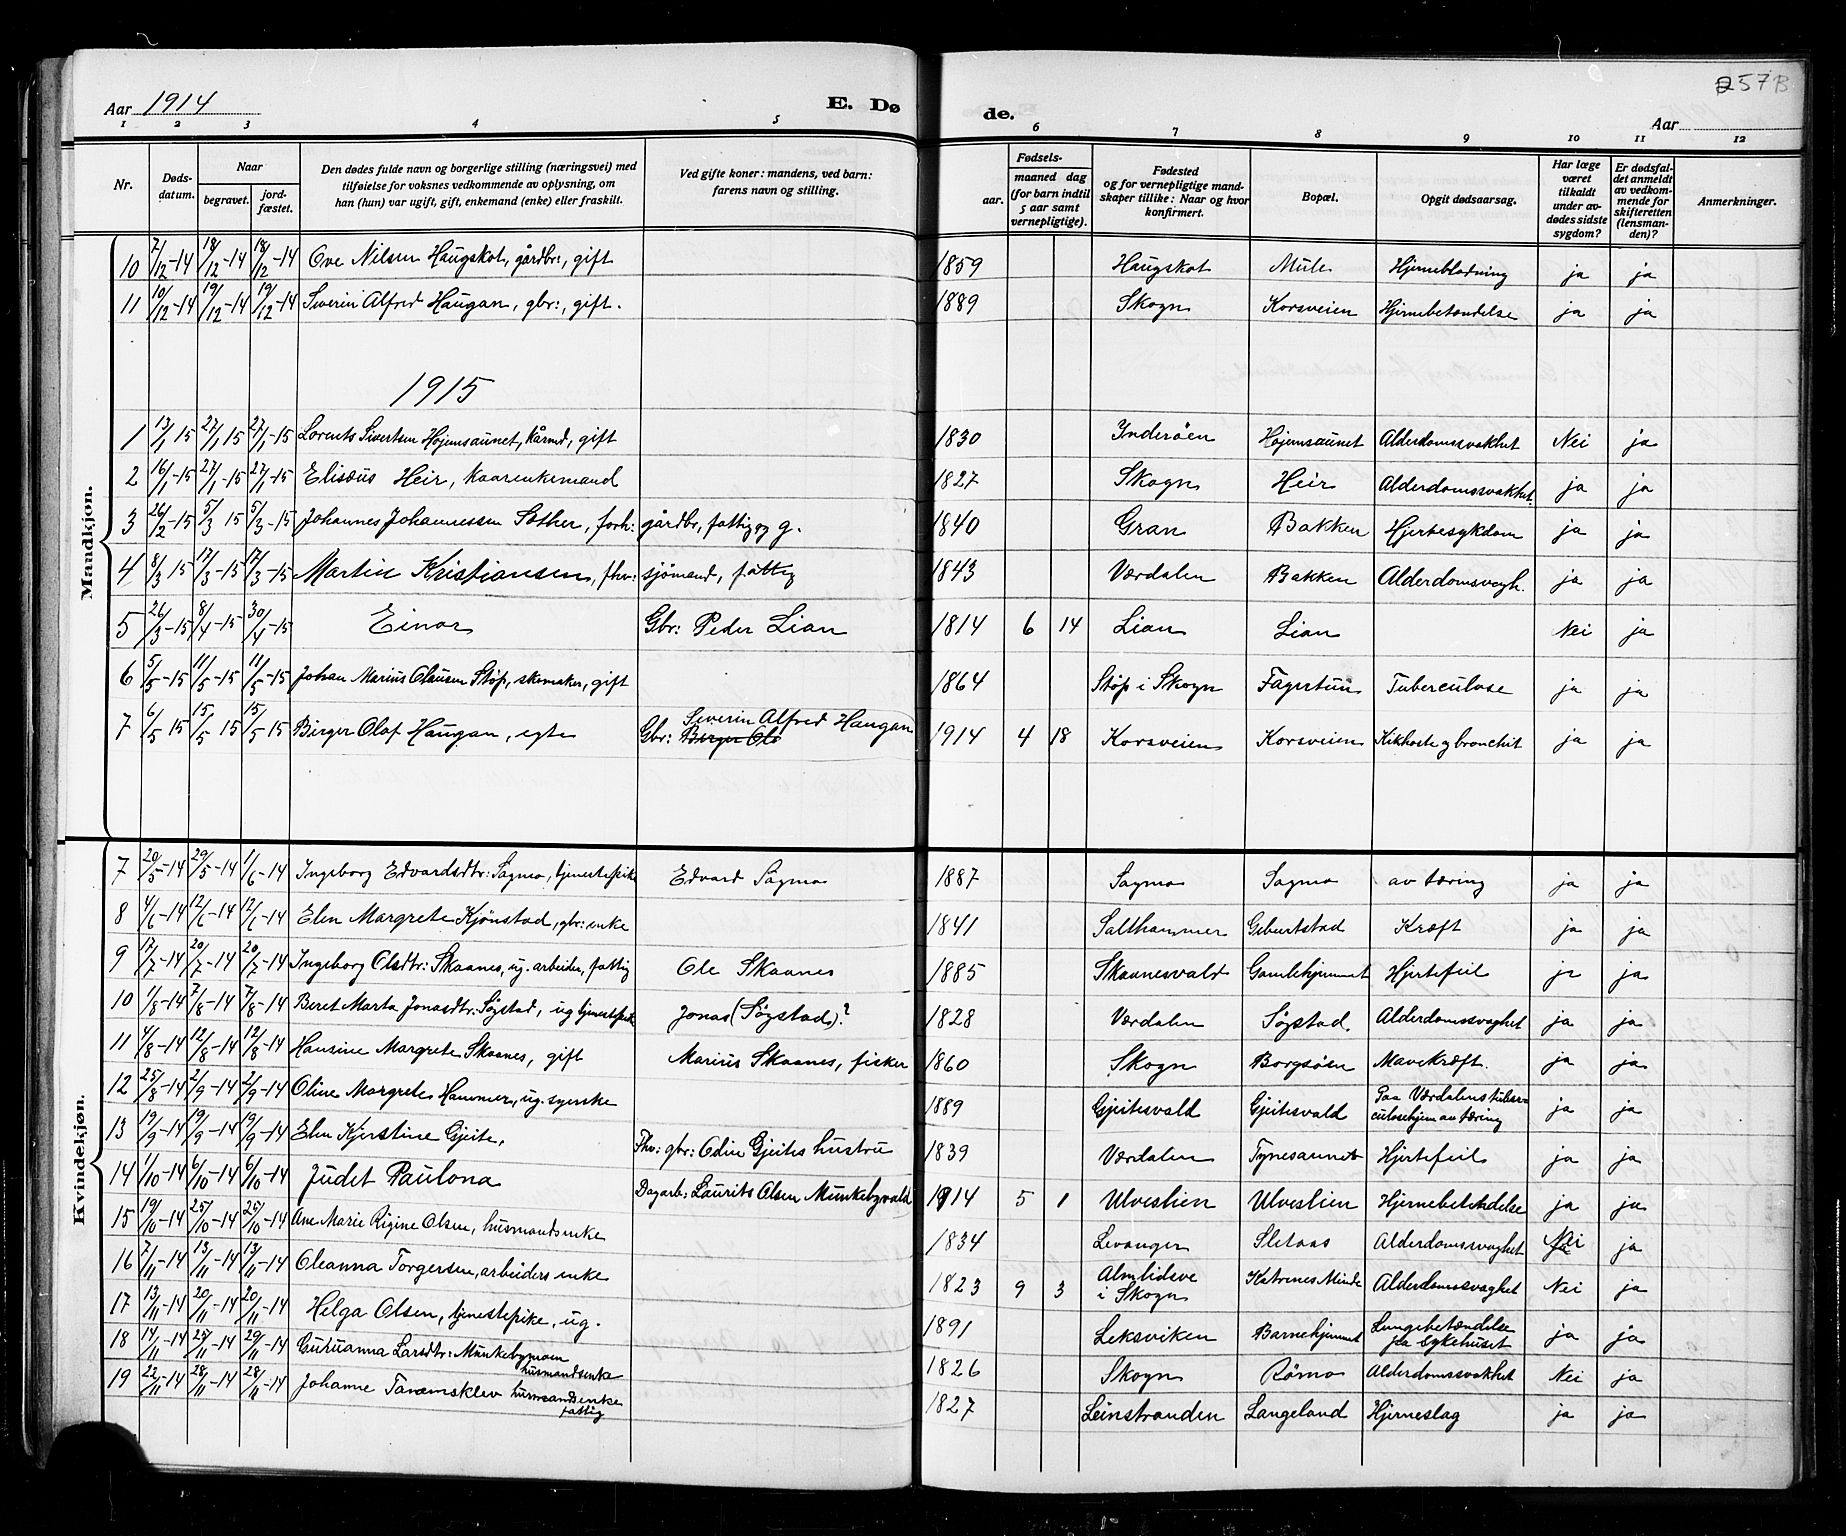 257B
Aar 1914 E. Dø de. Aar
1 2 3 4 5 6 7 8 9 10 11 12
Nr.
Døds-
datum.
Naar
begravet.
jord-
fæstet.
Den dødes fulde navn og borgerlige stilling (næringsvei) med
tilføielse for voksnes vedkommende av oplysning, om
han (hun) var ugift, gift, enkemand (enke) eller fraskilt.
Ved gifte koner: mandens, ved barn:
farens navn og stilling.
Fødsels-
aar.
maaned dag
(for barn indtil
5 aar samt
vernepligtige).
Fødested
og for vernepligtige mand-
skaper tillike: Naar og hvor
konfirmert.
Bopæl.
Opgit dødsaarsag.
Har læge
været
tilkaldt
under av-
dødes sidste
sygdom?
Er dødsfal-
det anmeldt
av vedkom-
mende for
skifteretten
(lensman-
den)?
Anmerkninger.
Mandkjøn.
10 7/12-14 18/12-14 18/12-14 Ove Nilsen Haugskot, gårdbr:, gift 1859 Haugskot Mule Hjernebladning ja ja
11 10/12-14 19/12-14 19/12-14 Severin Alfred Haugan, gbr:, gift. 1889 Skogn Korsveien Hjernebetændelse ja ja
1915
1 13/1 15 27/1 15 27/1-15 Lorents Sivertsen Højemsaunet, kårmd, gift 1830 Inderøen Højemsaunet Alderdomssvakhet Nei ja
2 16/1-15 27/1-15 27/1-15 Elisæus Heir, kaarenkemand 1827 Skogn Heir Alderdomssvakhet. ja ja
3 26/2-15 5/3 15 5/3-15 Johannes Johannessen Sæther, forh: gårdbr, fattig og g. 1840 Gran Bakken Hjertesykdom ja ja
4 8/3 15 17/3-15 17/3-15 Martin Kristiansen, fhv: sjömand, fattig 1843 Værdalen Bakken Alderdomsvagh. ja ja
5 26/3-15 8/4-15 30/4-15 Einar Gbr: Peder Lian 1814 6 14 Lian Lian Nei ja
6 5/5-15 11/5-15 11/5-15 Johan Marius Olausen Støp, skomaker, gift 1864 Støp i Skogn Fagertun Tuberculose ja ja
7 6/5 15 15/5 15 15/5 15 Birger Olaf Haugan, egte Gbr: Birger Ole Severin Alfred Haugan 1914 4 18 Korsveien Korsveien Kikhoste og bronchit ja ja
Kvindekjøn.
7 20/5-14 29/5-14 1/6-14 Ingeborg Edvardsdtr: Sagmo, tjenestepike Edvard Sagmo 1887 Sagmo Sagmo av tæring ja ja
8 4/6-14 12/6-14 12/6-14 Elen Margrete Kjønstad, gbr: enke 1841 Salthammer Geburtstad Kræft ja ja
9 17/7-14 20/7-14 20/7-14 Ingeborg Olsdtr: Skaanes, ug. arbeider, fattig Ole Skaanes 1885 Skaanesvald Gamlehjemmet Hjertefeil ja ja
10 1/8-14 7/8-14 7/8-14 Beret Marta Jonasdtr: Søgstad, ug tjenestepike Jonas (Søgstad)? 1828 Værdalen Søgstad Alderdomssvaghet ja ja
11 4/8-14 12/8-14 12/8-14 Hansine Margrete Skaanes, gift Marius Skaanes, fisker 1860 Skogn Borgsøen Mavekræft. ja ja
12 25/8-14 2/9-14 2/9-14 Oline Margrete Hammer, ug. syerske 1889 Gjeitesvald Gjeitesvald Paa Værdalens tuber-
culosehjem av tæring ja ja
13 19/9-14 19/9-14 19/9-14 Elen Kjerstine Gjeite, Fhv: gbr: Odin Gjeites hustru 1839 Værdalen Tynesaunet Hjertefeil ja ja
14 1/10-14 6/10-14 6/10-14 Judet Paulona Dagarb: Laurits Olsen Munkebyvald 1914 5 1 Ulvestien Ulvestien Hjernebetændelse ja ja
15 19/10-14 25/10-14 25/10-14 Ane Marie Rigine Olsen, husmandsenke 1834 Levanger Sletaas Alderdomssvaghet Nei ja ja
16 7/11-14 13/11-14 13/11-14 Oleanna Torgersen, arbeiders enke 1823 9 3 Almlidsve
i Skogn Katrines Minde Alderdomssvaghet Nei ja
17 13/11-14 20/11-14 20/11-14 Helga Olsen, tjenestepike, ug. 1891 Leksviken Barnehjemmet Lungebetændelse
paa Sykehuset ja ja
18 14/11-14 25/11-14 29/11-14 Guruanna Larsdtr: Munkebymoen
husmandsenke 1826 Skogn Römo Alderdomssvakhet Nei ja
19 22/11-14 28/11-14 28/11-14 Johanne Tanemsklev husmandsenke
fattig 1827 Leinstranden Langeland Hjerneslag ja ja